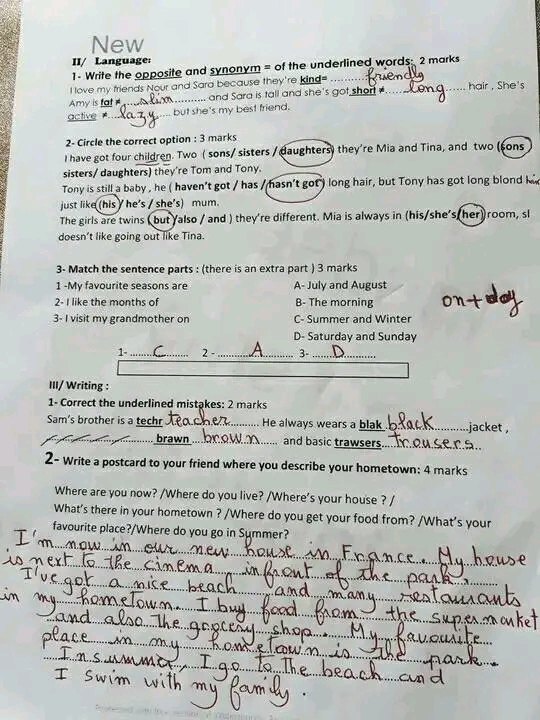 New
II/ Language:
1- Write the opposite and synonym = of the underlined words: 2 marks
I love my friends Nour and Sara because they're kind= ..........friendly
Amy is fat ≠......slim.......... and Sara is tall and she's got short ≠......long...... hair , She's
active ≠...lazy.... but she's my best friend.
2- Circle the correct option : 3 marks
I have got four children. Two ( sons/ sisters / daughters) they're Mia and Tina, and two (sons
sisters/ daughters) they're Tom and Tony.
Tony is still a baby , he ( haven't got / has / hasn't got ) long hair, but Tony has got long blond hair
just like (his / he's / she's ) mum.
The girls are twins ( but /also / and ) they're different. Mia is always in (his/she's/her) room, sl
doesn't like going out like Tina.
3- Match the sentence parts : (there is an extra part ) 3 marks
1 -My favourite seasons are A- July and August
2- I like the months of B- The morning
on + day
3- I visit my grandmother on C- Summer and Winter
D- Saturday and Sunday
1- .......C......... 2 - ............A............ 3- .......D............
III/ Writing :
1- Correct the underlined mistakes: 2 marks
Sam's brother is a techr teacher......... He always wears a blak black..........jacket ,
brawn ..brown...... and basic trawsers....trousers..
2- Write a postcard to your friend where you describe your hometown: 4 marks
Where are you now? /Where do you live? /Where's your house ? /
What's there in your hometown ? /Where do you get your food from? /What's your
favourite place?/Where do you go in Summer?
I'm now in our new house in France. My house
is next to the cinema in front of the park.
I've got a nice beach and many restaurants
in my hometown. I buy food from the supermarket
and also the grocery shop. My favourite
place in my hometown is the park.
In summer, I go to the beach and
I swim with my family.